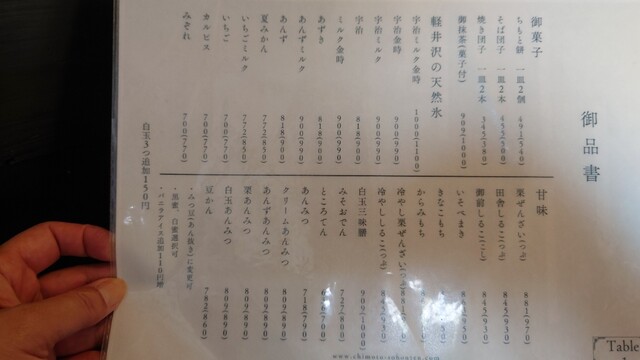 御品書
御菓子
ちもと餅 一皿2個 491(540)
そば団子 一皿2本 455(500)
焼き団子 一皿2本 345(380)
御抹茶(菓子付) 909(1000)
軽井沢の天然氷
宇治ミルク金時 1000(1100)
宇治金時 900(990)
宇治ミルク 900(990)
宇治 818(900)
ミルク金時 900(990)
あずき 818(900)
あんずミルク 900(990)
あんず 818(900)
夏みかん 772(850)
いちごミルク 772(850)
いちご 700(770)
カルピス 700(770)
みぞれ 700(770)
白玉3つ追加150円
甘味
栗ぜんざい(つぶ) 881(970)
田舎しるこ(つぶ) 845(930)
御前しるこ(こし) 845(930)
いそべまき
きなこもち
からみもち
冷やし栗ぜんざい(つぶ)
冷やししるこ(つぶ)
白玉三味膳 909(1000)
みそおでん 727(800)
ところてん
あんみつ 718(790)
クリームあんみつ 809(890)
あんずあんみつ 809(890)
栗あんみつ 809(890)
白玉あんみつ 809(890)
豆かん 782(860)
・みつ豆(あん抜き)に変更可
・黒蜜、白蜜選択可
・バニラアイス追加110円増
Table